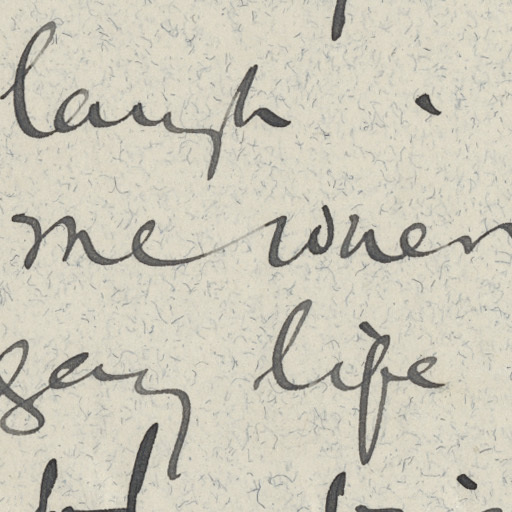 laugh.
me when
gay life